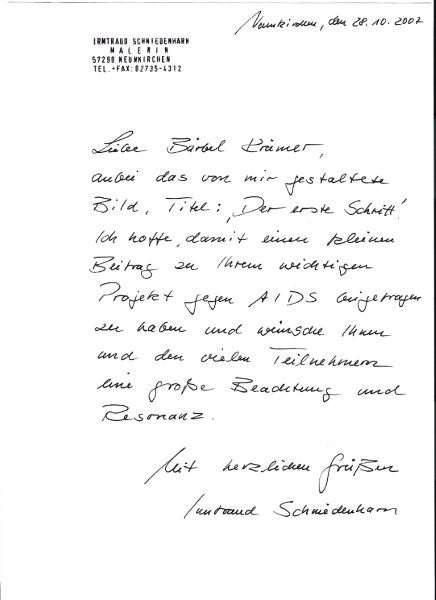 Neunkirchen, den 28.10.2002
IRMTRAUD SCHMIEDENHARN
MALERIN
57290 NEUNKIRCHEN
TEL.+FAX: 02735-4312
Liebe Bärbel Krämer,
anbei das von mir gestaltete
Bild, Titel: „Der erste Schritt!
Ich hoffe, damit einen kleinen
Beitrag zu Ihrem wichtigen
Projekt gegen AIDS beigetragen
zu haben und wünsche Ihnen
und den vielen Teilnehmern
eine große Beachtung und
Resonanz.
Mit herzlichen Grüßen
Irmtraud Schmiedenharn